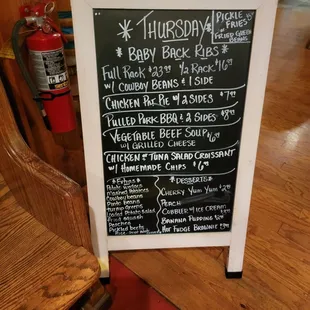 * THURSDAY
PICKLE
FRIES
or
FRIED GREEN
BEANS
* BABY BACK RIBS *
FULL RACK $23.99 1/2 RACK $16.99
w/ COWBOY BEANS & 1 SIDE
CHICKEN POT PIE w/ 2 SIDES $7.99
PULLED PORK BBQ & 2 SIDES $8.99
VEGETABLE BEEF SOUP $6.99
w/ GRILLED CHEESE
CHICKEN or TUNA SALAD CROISSANT
w/ HOMEMADE CHIPS $6.99
* Extras *
Mashed Potatoes
Cowboy beans
Pinto beans
Turnip Greens
Loaded Potato Salad
Fried Squash
Pickled beets
* DESSERTS *
CHERRY YUM YUM
PEACH
COBBLER w/ ICE CREAM
BANANA PUDDING
HOT FUDGE BROWNIE